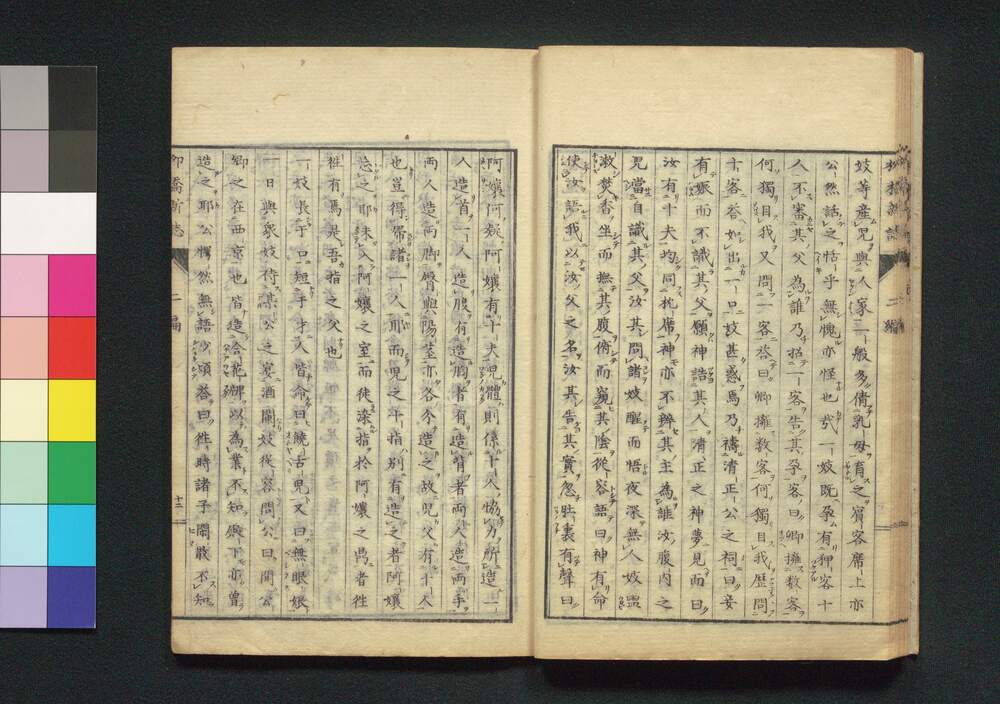 妓等産児与人家一般多倩乳母育之賓客席上亦
公然話之恬乎無愧亦怪也哉一妓既孕有狎客十
人不審其父為誰乃招一客告其孕客曰卿擁数客
何独目我又問一客答曰卿擁数客何独目我歴問
十客答如出一口妓甚惑焉乃禱清正公之祠曰妾
有娠而不識其父願神誥其人清正之神夢見而曰
汝有十夫均同枕席神亦不辨其主為誰汝腹内之
児当自識其父汝其問諸妓醒而悟夜深無人妓盥
漱焚香坐而撫其腹俯而窺其陰従容語曰神有命
使汝語我以汝父之名汝其告其実忽牝裏有声曰
阿嬢阿嬢有十夫児体則係十人協力所造一
人造首一人造腹有造胸者有造背者両人造両手
両人造両脚臀与陽茎亦各分造之故児父有十人
也豈得帰諸一人耶而児之午指別有造之者阿嬢
忘之耶未入阿嬢之室而徒染指於阿嬢之鼎者往
往有焉是吾指之父也
一妓長于口短于才人皆命曰饒舌児又曰無眼娘
一日与衆妓侍某公之宴酒闌妓従容問公曰聞公
卿之在西京也皆造合花牌以為業不知殿下亦曽
造之耶公愕然無語少頃答曰往時諸子閑散不知
柳橋新誌
二編
十三